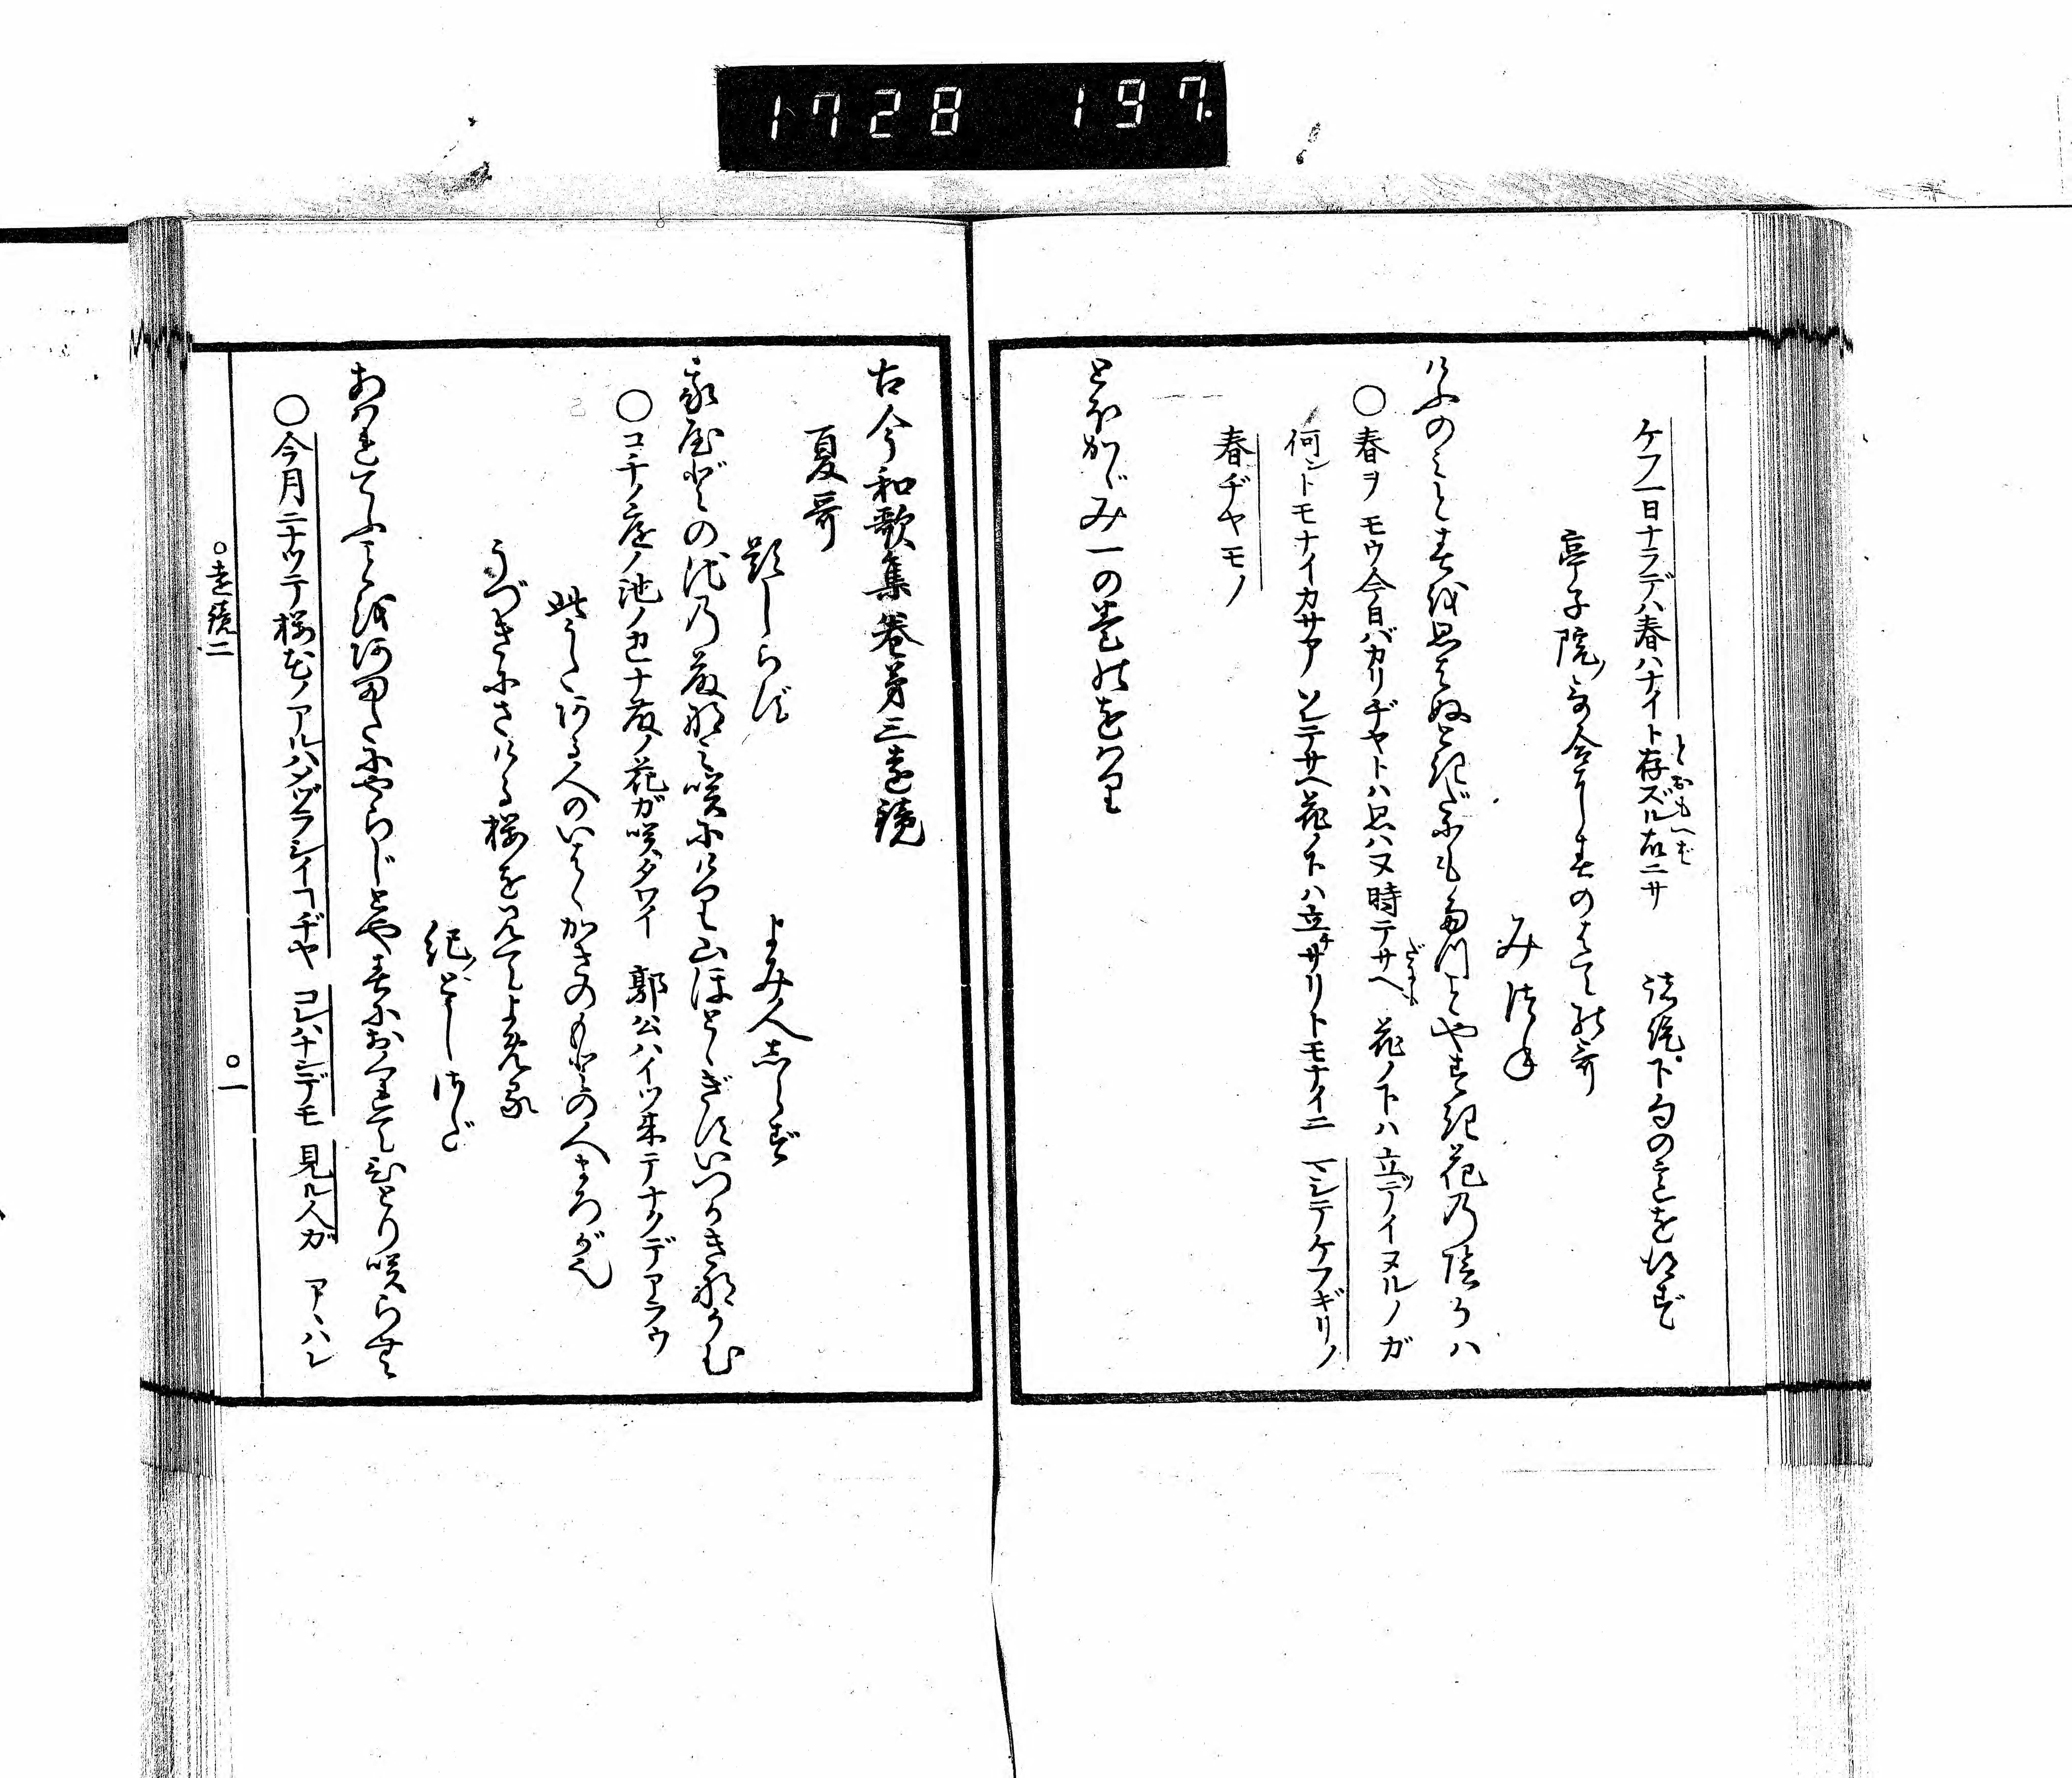 1728 197
ケフ一日ナラデハ春ハナイト存ズル故ニサ 結句下句の意を得ず
とおもへば
亭子院ノ哥合に春のはての哥
みつね
けふのみと春を思はぬときだにも立ことやすき花の陰かハ
○春ヲ モウ今日バカリヂヤトハ思ハヌ時デサヘ 花ノ下ハ立テイヌルノガ
だにも
何ントモナイカサア ソレデサヘ花ノ下ハ立サリトモナイニ マシテケフギリノ
春ヂヤモノ
とほかゞみ一の巻のをはり
古今和歌集巻第三遠鏡
夏哥
題しらず よみ人しらず
我屋どの池の藤なみ咲にけり山ほとゝぎすいつかき鳴かむ
○コチノ庭ノ池ノ 藤ノ花ガ咲タワイ 郭公ハイツ来テナクデアラウ
此うたある人のいはくかきのもとの人まろが也
うづきにさける桜を見てよめる
紀ノとしさだ
あはれてふことをあまたにやらじとや春におくれてひとり咲らむ
○今月ニナツテ桜花ノアルハメヅラシイコトヂヤ コレハナンデモ 見ル人ガ アヽハレ
○遠鏡二 ○一